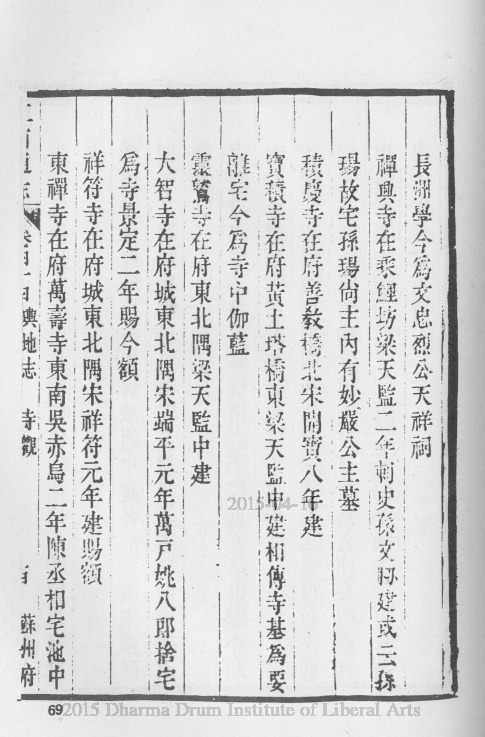 長洲學今爲文忠烈公天祥祠
禪興寺在乘經坊梁天監二年刺史孫文建或云孫
瑒故宅孫瑒尚主內有妙嚴公主墓
積慶寺在府善教橋北宋開寶八年建
寶積寺在府黃土塔橋東梁天監中建相傳寺基爲要
離宅今爲寺中伽藍
靈鷲寺在府東北隅梁天監中建
大智寺在府城東北隅宋端平元年萬戸姚八郎捨宅
爲寺景定二年賜今額
祥符寺在府城東北隅宋祥符元年建賜額
東禪寺在府萬壽寺東南吳赤烏二年陳丞相宅池中
通志 卷四十 輿地志 寺觀 蘇州府
2015-04-16
69
2015 Dharma Drum Institute of Liberal Arts